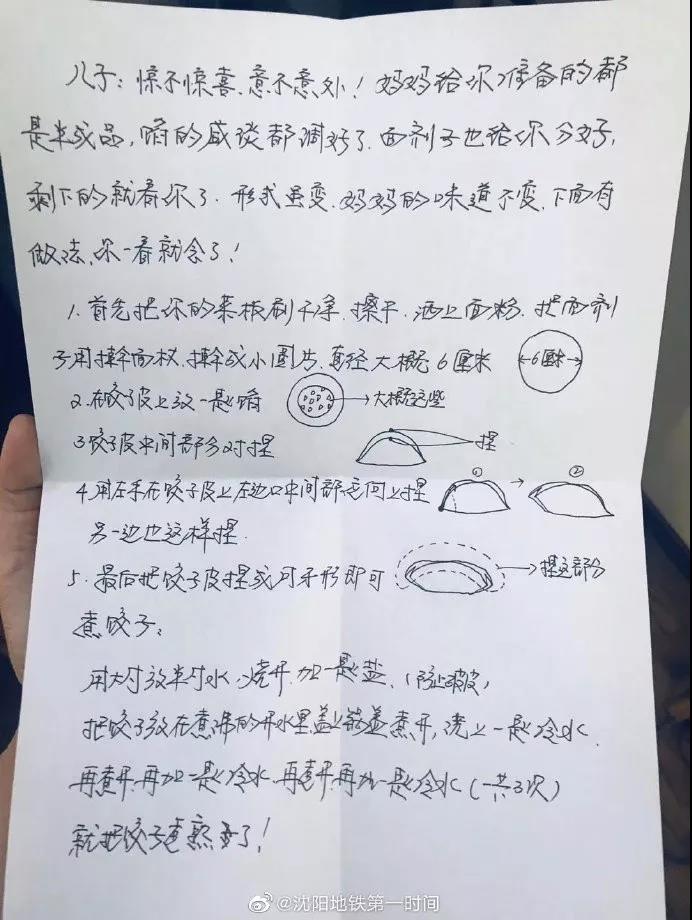 儿子：惊不惊喜、意不意外！妈妈给你准备的都
是半成品，馅的咸淡都调好了.面剂子也给你分好，
剩下的就看你了.形式虽变.妈妈的味道不变.下面有
做法、你一看就会了！
1.首先把你的菜板刷干净.擦干.洒上面粉.把面剂
子用擀面杖.擀成小圆片.直径大概6厘米
6厘米
2.在饺子皮上放一些馅
大概这些
3饺子皮中间部分对捏
捏
4.用左手在饺子皮上左边口中间部位向上捏
① ②
另一边也这样捏.
5.最后把饺子皮捏成月牙形即可
捏这部分
煮饺子：
用大锅放半锅水.烧开.加一些盐、（防止破皮）
把饺子放在煮沸的开水里盖上锅盖煮开，浇上一些冷水.
再煮开.再加一些冷水.再煮开.再加一些冷水（一共3次）
就把饺子煮熟了！
@沈阳地铁第一时间